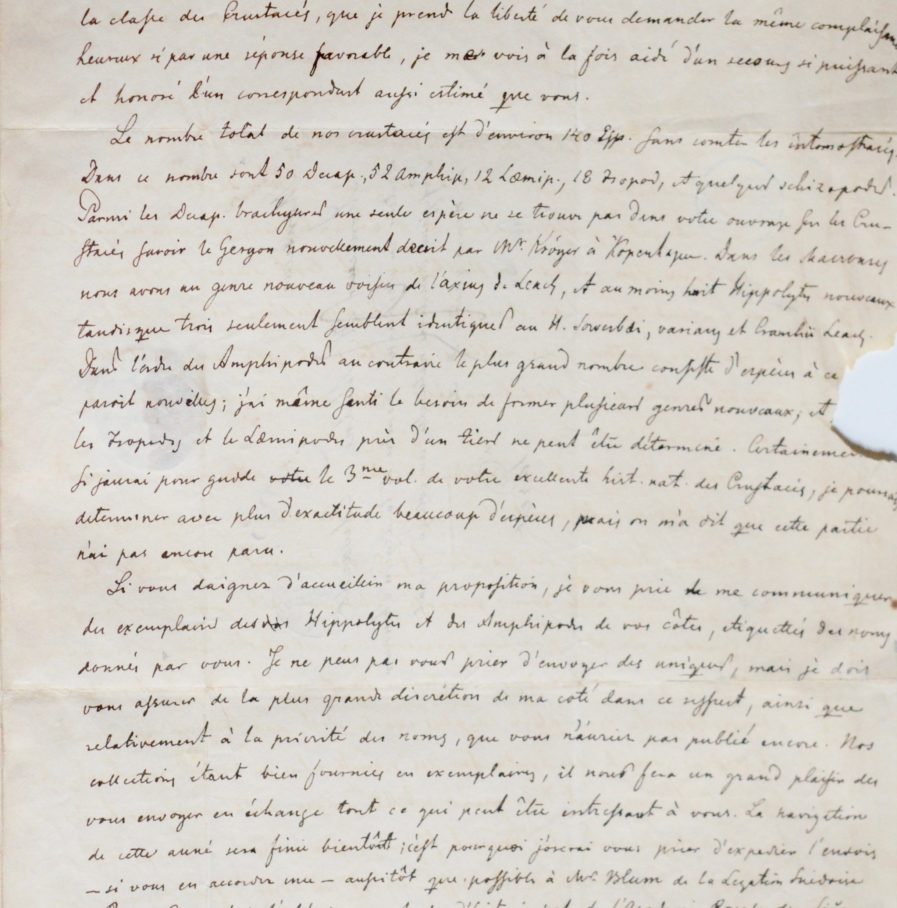 la classe des Crustacés, que je prend la liberté de vous demander la même complaisan
heureux si par une réponse favorable, je me vois à la fois aidé d'un secours si puissant
et honoré d'un correspondant aussi estimé que vous.
Le nombre total de nos crustacés est d'environ 140 Esp. sans compter les entomostracés.
Dans ce nombre sont 50 Decap., 52 Amphip., 12 Læmip., 18 Isopod, et quelques schizopodes.
Parmi les Decap. brachyures une seule espèce ne se trouve pas dans votre ouvrage sur les Cru-
stacés savoir le Geryon nouvellement decrit par Mr Kröyer à Kopenhague. Dans les Macroures
nous avons un genre nouveau voisin de l'axius de Leach, et au moins huit Hippolytes nouveaux
tandisque trois seulement semblent identiques au H. Sowerbæi, varians et Cranchii Leach.
Dans l'ordre des Amphipodes au contraire le plus grand nombre consiste d'espèces à ce
paroit nouvelles; j'ai même senti le besoin de former plusieurs genres nouveaux; et
les Isopodes et le Læmipodes près d'un tiers ne peut être déterminé. Certaineme
si jaurai pour guide votre le 3me vol. de votre excellente hist. nat. des Crustacés, je pourrais
determiner avec plus d'exactitude beaucoup d'espèces, mais on m'a dit que cette partie
n'ai pas encore paru.
Si vous daignez d'accueillir ma proposition, je vous prie de me communiquer
des exemplaires des Hippolytes et des Amphipodes de vos côtes, etiquettés des noms
donnés par vous. Je ne peus pas vous prier d'envoyer des uniques, mais je dois
vous assurer de la plus grande discrétion de ma coté dans ce respect, ainsi que
relativement à la priorité des noms, que vous n'auriez pas publié encore. Nos
collections étant bien fournies en exemplaires, il nous fera un grand plaisir des
vous envoyer en échange tout ce qui peut être intressant à vous. La navigation
de cette anné sera finie bientôt; c'est pourquoi j'oserai vous prier d'expedier l'envois
– si vous en accordez une – aussitôt que possible à Mr Blum de la Legation Suedoise